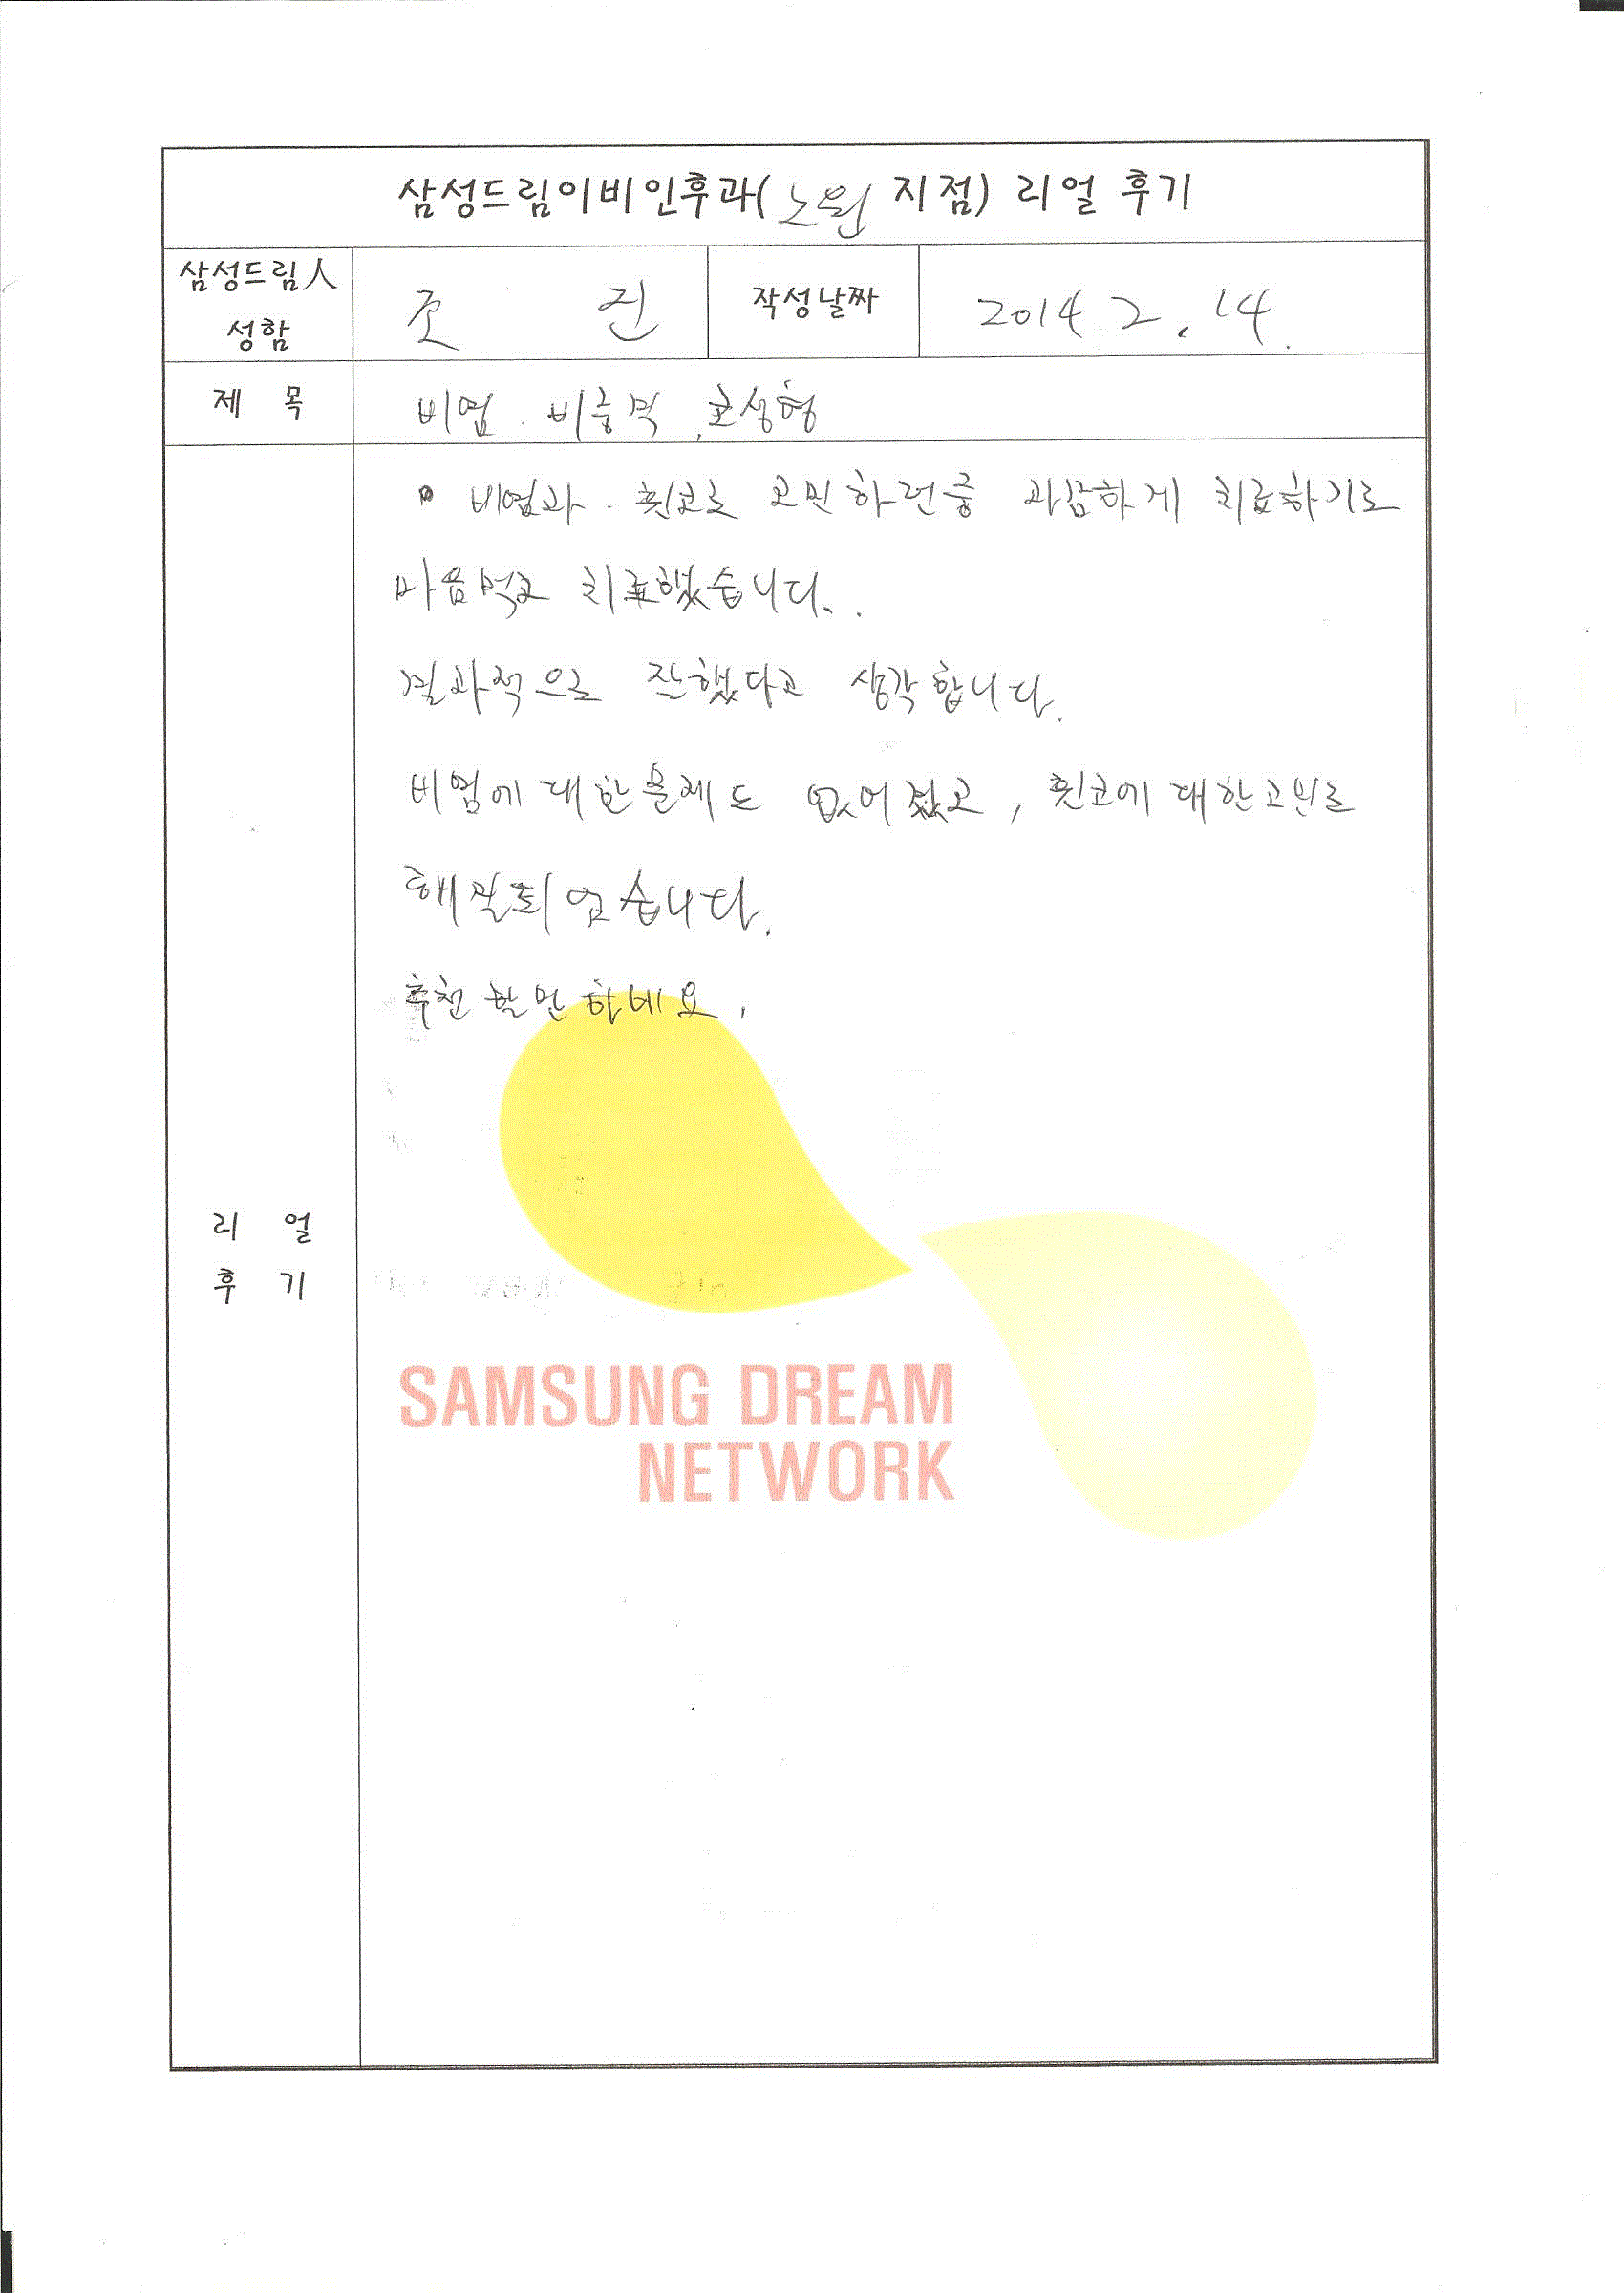 삼성드림이비인후과(노원 지점) 리얼 후기
삼성드림人 성함
조 진
작성날짜
2014. 2. 14.
제 목
비염. 비중격, 코성형
비염과. 휜코로 고민하던중 과감하게 치료하기로
마음먹고 치료했습니다.
결과적으로 잘했다고 생각합니다.
비염에 대한 문제도 없어졌고, 휜코에 대한 고민도
해결되었습니다.
추천 할만 하네요.
리 얼
후 기
SAMSUNG DREAM
NETWORK